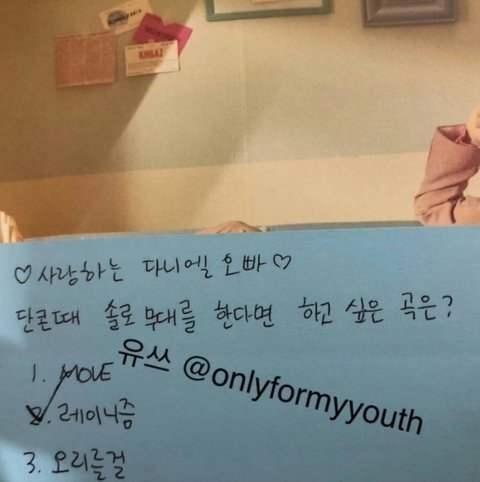 KHGAZ
♡사랑하는 다니엘 오빠♡
단콘때 솔로 무대를 한다면 하고 싶은 곡은?
1. MOVE
유쓰 @onlyformyyouth
2. 레이니즘
3. 오리를걸